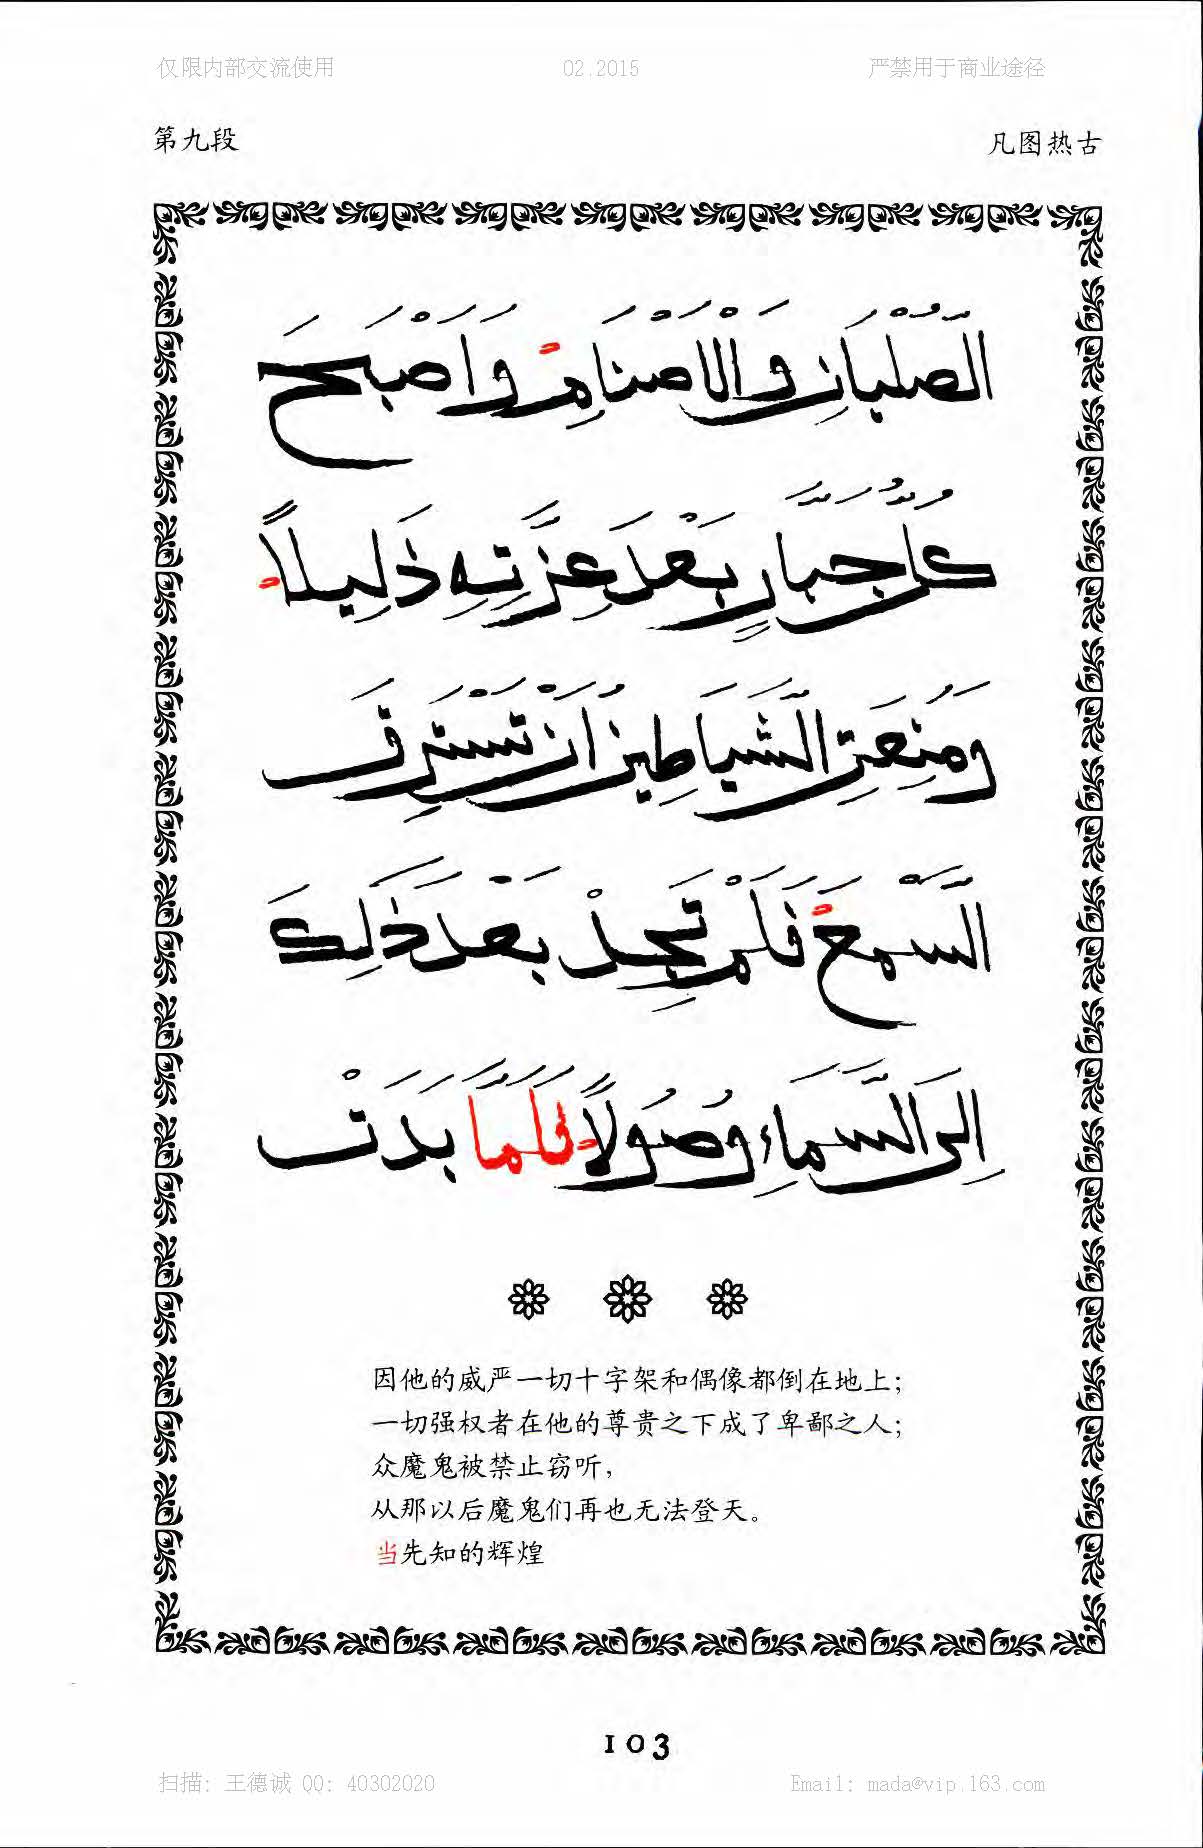 仅限内部交流使用 02.2015 严禁用于商业途径
第九段 凡图热古
الصُّلْبَانِ وَالْاَصْنَامِ وَاَصْبَحَ
كُلُّ جَبَّارٍ بَعْدَ عِزَّتِهِ ذَلِيلًا
وَمُنِعَتِ الشَّيَاطِينُ اَنْ تَسْتَرِقَ
السَّمْعَ فَلَمْ تَجِدْ بَعْدَ ذَلِكَ
اِلَى السَّمَاءِ وُصُولًا فَلَمَّا بَدَتْ
因他的威严一切十字架和偶像都倒在地上；
一切强权者在他的尊贵之下成了卑鄙之人；
众魔鬼被禁止窃听，
从那以后魔鬼们再也无法登天。
当先知的辉煌
103
扫描: 王德诚 QQ: 40302020 Email: mada@vip.163.com